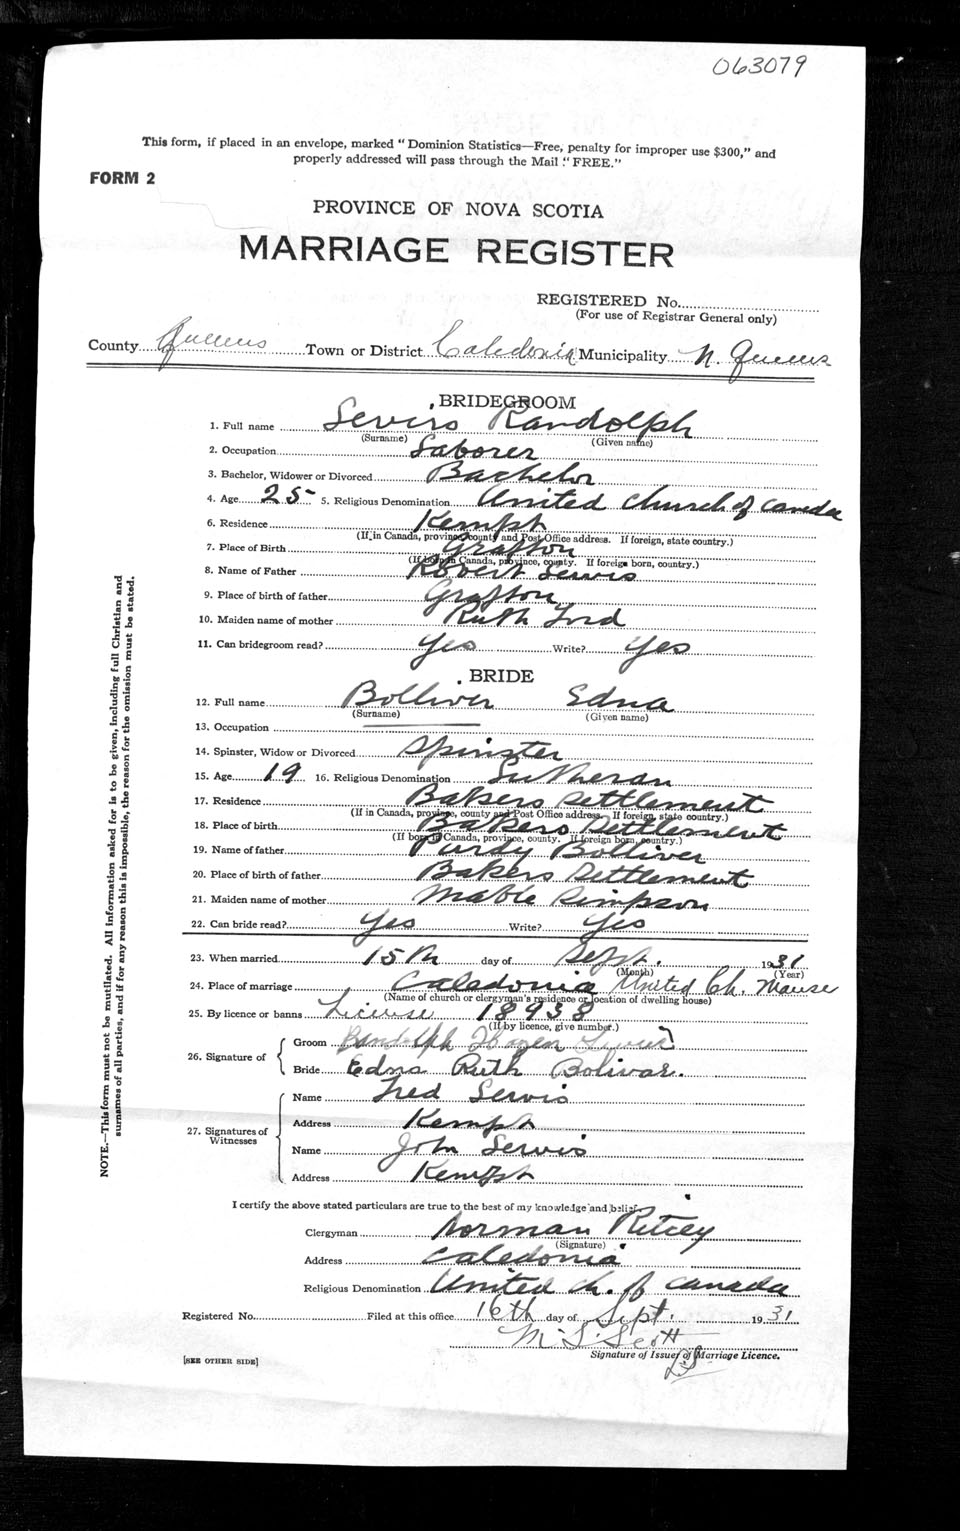 063079
This form, if placed in an envelope, marked "Dominion Statistics—Free, penalty for improper use $300," and
properly addressed will pass through the Mail "FREE."
FORM 2
PROVINCE OF NOVA SCOTIA
MARRIAGE REGISTER
REGISTERED No.
(For use of Registrar General only)
County Queens Town or District Caledonia Municipality N. Queens
BRIDEGROOM
1. Full name Servis Randolph
(Surname) (Given name)
2. Occupation Laborer
3. Bachelor, Widower or Divorced Bachelor
4. Age 25 5. Religious Denomination United Church of Canada
6. Residence Kempt
(If in Canada, province, county and Post Office address. If foreign, state country.)
7. Place of Birth Grafton
(If born in Canada, province, county. If foreign born, country.)
8. Name of Father Robert Servis
9. Place of birth of father Grafton
10. Maiden name of mother Ruth Ford
11. Can bridegroom read? Yes Write? Yes
BRIDE
12. Full name Bolliver Edna
(Surname) (Given name)
13. Occupation
14. Spinster, Widow or Divorced Spinster
15. Age 19 16. Religious Denomination Lutheran
17. Residence Bakers Settlement
(If in Canada, province, county and Post Office address. If foreign, state country.)
18. Place of birth Bakers Settlement
(If born in Canada, province, county. If foreign born, country.)
19. Name of father Purdy Bolliver
20. Place of birth of father Bakers Settlement
21. Maiden name of mother Mable Simpson
22. Can bride read? Yes Write? Yes
23. When married 15th day of Sept. 1931
(Month) (Year)
24. Place of marriage Caledonia United Ch. Manse
(Name of church or clergyman's residence or location of dwelling house)
25. By licence or banns License 18938
(If by licence, give number.)
26. Signature of
Groom Randolph
Bride Edna Ruth Bolivar.
27. Signatures of Witnesses
Name Fred Servis
Address Kempt
Name John Servis
Address Kempt
I certify the above stated particulars are true to the best of my knowledge and belief
Clergyman Norman Ritcey
(Signature)
Address Caledonia
Religious Denomination United Ch. of Canada
Registered No. Filed at this office 16th day of Sept. 1931
M. S. Scott
Signature of Issuer of Marriage Licence.
[SEE OTHER SIDE]
NOTE.—This form must not be mutilated. All information asked for is to be given, including full Christian and
surnames of all parties, and if for any reason this is impossible, the reason for the omission must be stated.